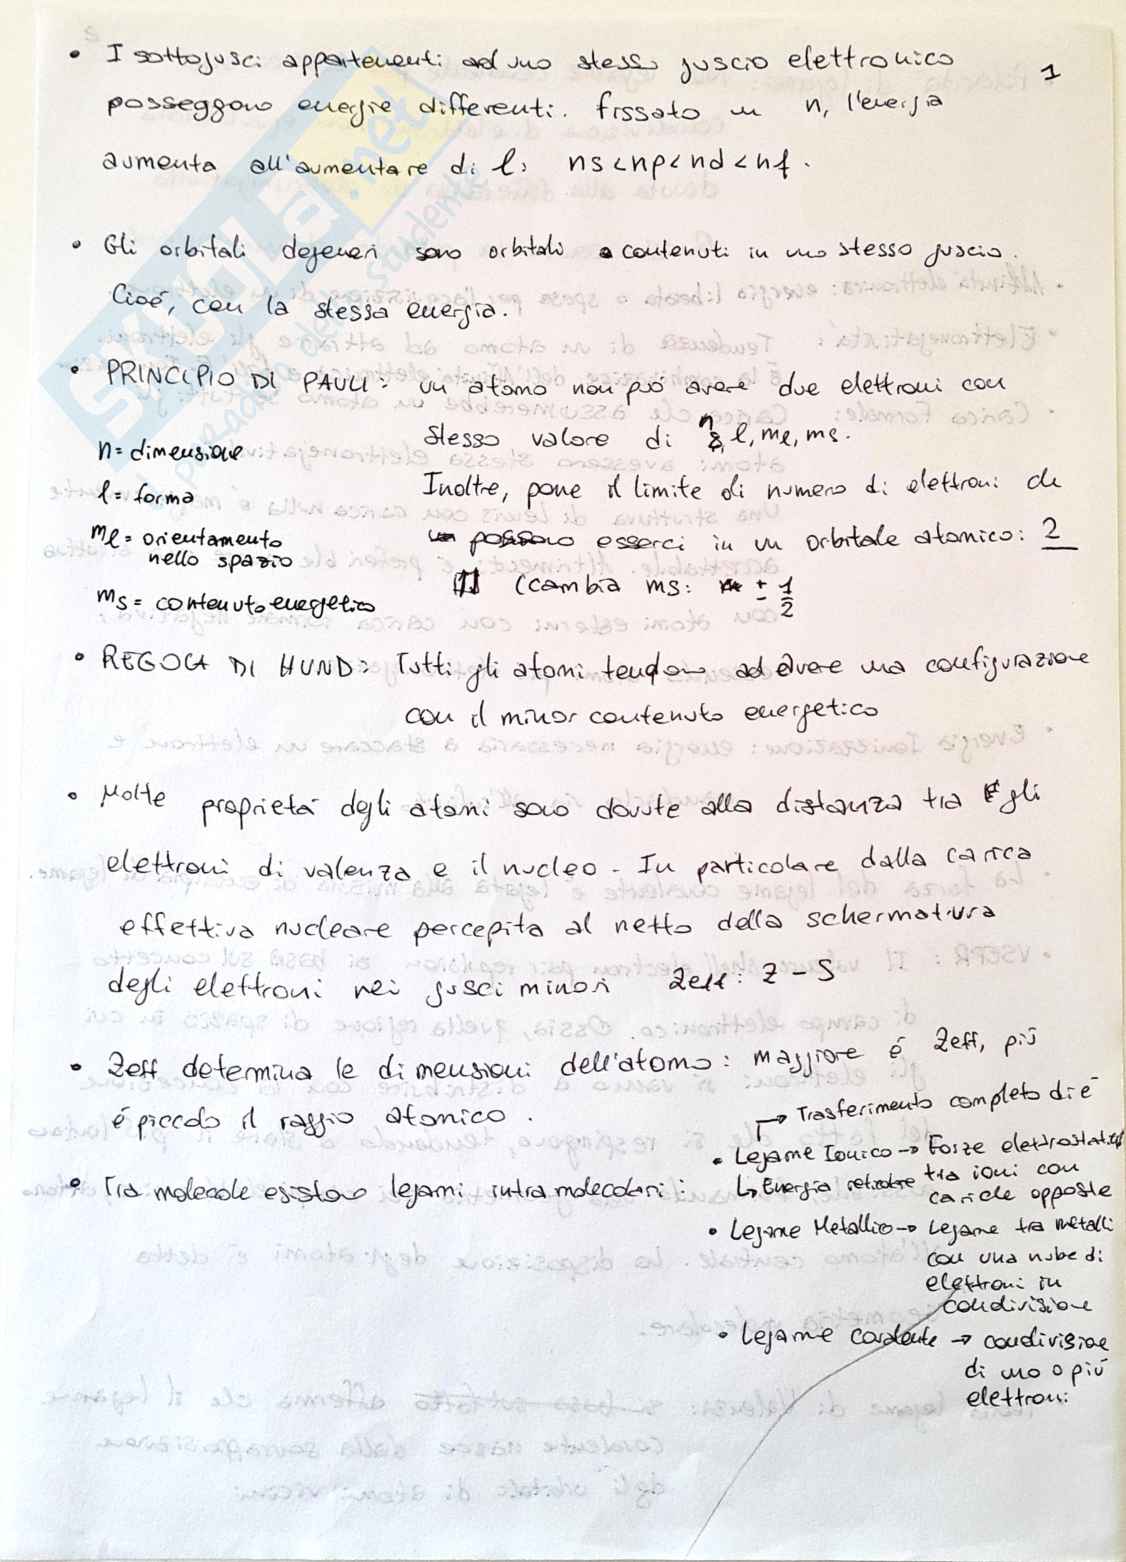 1
• I sottogusci appartenenti ad uno stesso guscio elettronico
posseggono energie differenti. fissato un n, l'energia
aumenta all'aumentare di l: ns<np<nd<nf.
• Gli orbitali degeneri sono orbitali contenuti in uno stesso guscio.
Cioé, con la stessa energia.
• PRINCIPIO DI PAULI: un atomo non può avere due elettroni con
stesso valore di n, l, ml, ms.
n= dimensione
l= forma
ml= orientamento
nello spazio
ms= contenuto energetico
Inoltre, pone il limite di numero di elettroni che
possono esserci in un orbitale atomico: 2
(cambia ms: ± 1/2
• REGOLA DI HUND: Tutti gli atomi tendono ad avere una configurazione
con il minor contenuto energetico
• Molte proprietà degli atomi sono dovute alla distanza tra gli
elettroni di valenza e il nucleo. In particolare dalla carica
effettiva nucleare percepita al netto della schermatura
degli elettroni nei gusci minori Zeff: Z - S
• Zeff determina le dimensioni dell'atomo: maggiore é Zeff, più
é piccolo il raggio atomico.
• Tra molecole esistono legami intramolecolari:
→ Trasferimento completo di e⁻
• Legame Ionico → Forze elettrostatiche
tra ioni con
cariche opposte
↳ Energia reticolare
• Legame Metallico → Legame tra metalli
con una nube di
elettroni in
condivisione
• Legame Covalente → condivisione
di uno o più
elettroni
skuola.net
paradiso dello studente